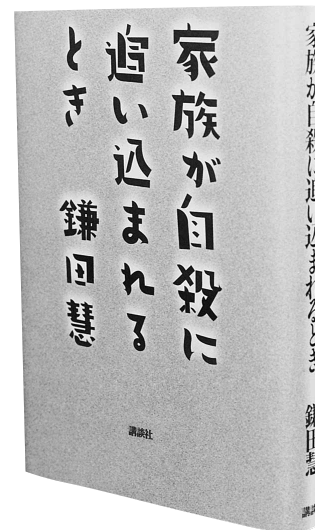 家族が自殺に
追い込まれる
とき
鎌田慧
講談社
家族が自殺に追い込まれるとき
鎌田慧
講談社